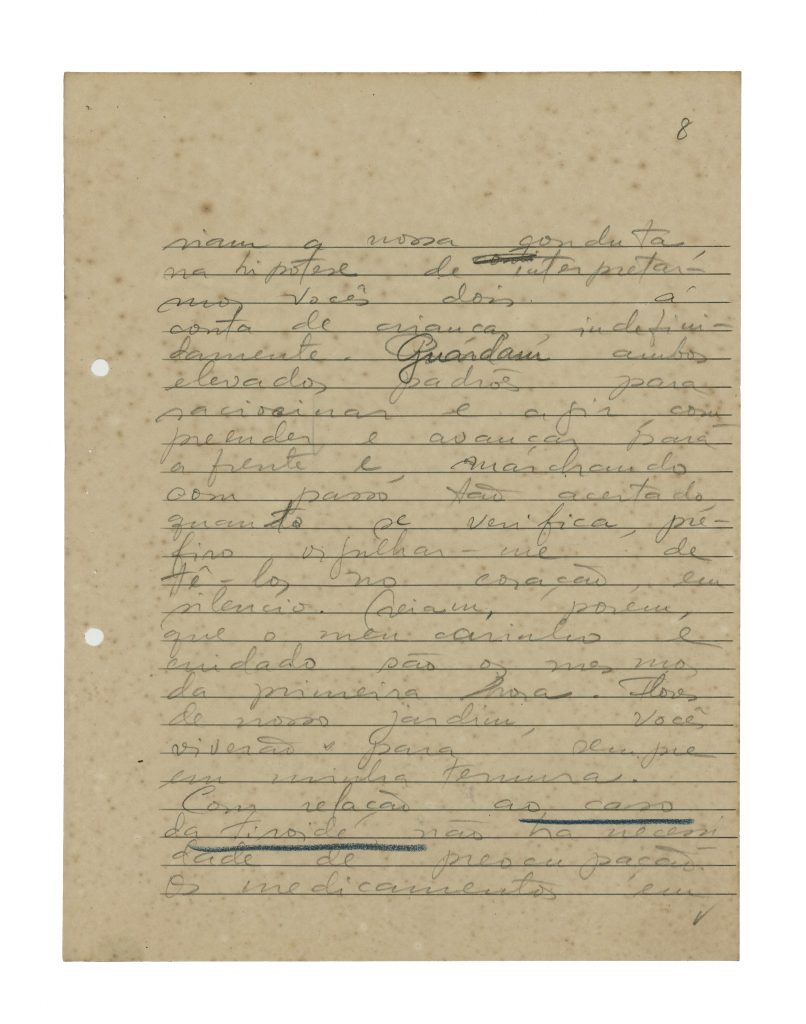 8
riam a nossa conduta,
na hipótese de interpretar-
mos vocês dois á
conta de criança, indefini-
damente. Guardam ambos
elevados padrões para
raciocinar e agir, com
preender e avançar para
a frente e, marchando
com passo tão acertado
quanto se verifica, pre-
firo orgulhar-me de
tê-los no coração, em
silencio. Creiam, porem,
que o meu carinho e
cuidado são os mesmos
da primeira hora. Flores
de nosso jardim, vocês
viverão para sempre
em minha ternura.
Com relação ao caso
da tiroide, não há necessi
dade de preocupação.
Os medicamentos em